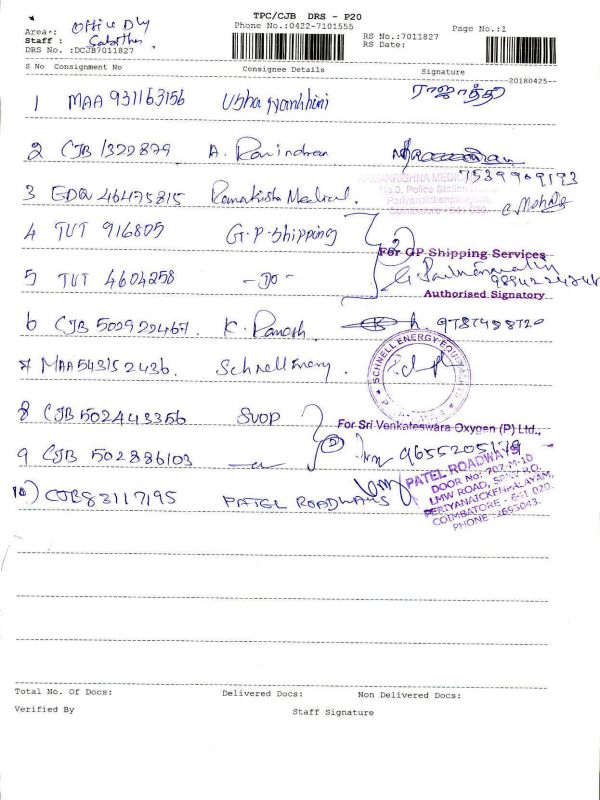 TPC/CJB DRS - P20
Area: Office Dly
Phone No.:0422-7101555
Page No.:1
Staff :
RS No.:7011827
DRS No. :DCJB7011827
RS Date:
S No Consignment No Consignee Details Signature
20180425--
1 MAA 931163156 ராஜாத்தி
2 CJB 1322879 A. Ravindran
7539909193
3 EDQ 46475815 Ramakrishna Medical.
RAMAKRISHNA MEDICAL
No.3, Police Station
Periyanaickenpalayam,
Coimbatore - 641 020.
4 TUT 916805 G.P. Shipping
For GP Shipping Services
5 TUT 4604258 - Do -
Authorised Signatory
6 CJB 502922467. K. Ramesh. 9787458720
7 MAA 543152436. Schnell Energy.
SCHNELL ENERGY EQUIPMENTS
8 CJB 502443356 SVOP
For Sri Venkateswara Oxygen (P) Ltd.,
9 CJB 502886103
9655205149
10) CJB83117195 PATEL ROADWAYS
PATEL ROADWAYS
DOOR No: 707-M-10
LMW ROAD, SRKV P.O.
PERIYANAICKENPALAYAM,
COIMBATORE - 641 020.
PHONE : 2693043.
Total No. Of Docs: Delivered Docs: Non Delivered Docs:
Verified By Staff Signature